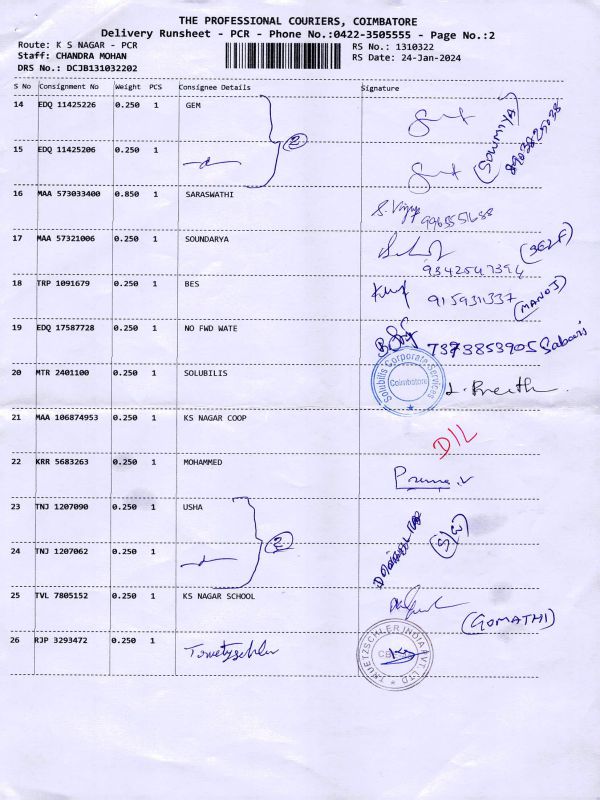 THE PROFESSIONAL COURIERS, COIMBATORE
Delivery Runsheet - PCR - Phone No.:0422-3505555 - Page No.:2
Route: K S NAGAR - PCR
RS No.: 1310322
Staff: CHANDRA MOHAN
RS Date: 24-Jan-2024
DRS No.: DCJB131032202
S No Consignment No Weight PCS Consignee Details Signature
14 EDQ 11425226 0.250 1 GEM
(SOWMIYA)
15 EDQ 11425206 0.250 1
2
16 MAA 573033400 0.850 1 SARASWATHI
S. Vijay
17 MAA 57321006 0.250 1 SOUNDARYA
(SELF)
9342547394
18 TRP 1091679 0.250 1 BES
9159311337 (MANOJ)
19 EDQ 17587728 0.250 1 NO FWD WATE
7373853905 Sabari
20 MTR 2401100 0.250 1 SOLUBILIS
Solubilis Corporate Services
Coimbatore
21 MAA 106874953 0.250 1 KS NAGAR COOP
D/L
22 KRR 5683263 0.250 1 MOHAMMED
Prema.V
23 TNJ 1207090 0.250 1 USHA
2
(S/W)
24 TNJ 1207062 0.250 1
25 TVL 7805152 0.250 1 KS NAGAR SCHOOL
(GOMATHI)
26 RJP 3293472 0.250 1
TRUETZSCHLER INDIA PVT. LTD